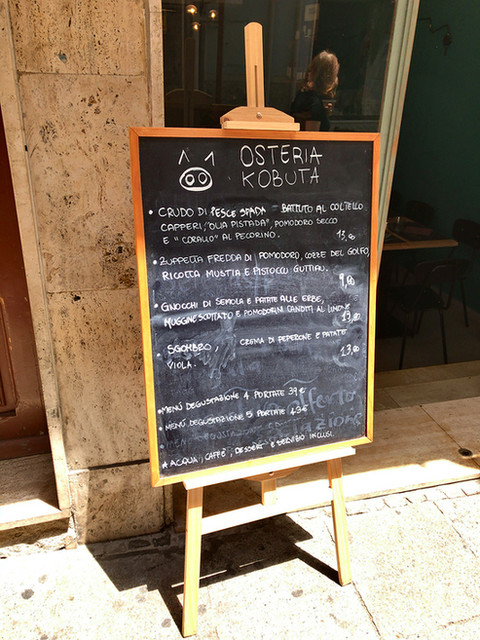 OSTERIA
KOBUTA
• CRUDO DI PESCE SPADA - BATTUTO AL COLTELLO
CAPPERI, "OLIA PISTADA", POMODORO SECCO
E "CORALLO" AL PECORINO. 13,00
• ZUPPETTA FREDDA DI POMODORO, COZZE DEL GOLFO,
RICOTTA MUSTIA E PISTOCCU GUTTIAU.
9,00
• GNOCCHI DI SEMOLA E PATATE ALLE ERBE,
MUGGINE SCOTTATO E POMODORINI CANDITI AL LIMONE
13,00
• SGOMBRO, CREMA DI PEPERONE E PATATE
VIOLA. 13,00
• MENÚ DEGUSTAZIONE 4 PORTATE 39 €
• MENÚ DEGUSTAZIONE 5 PORTATE 43 €
* ACQUA, CAFFE', DESSERT E SERVIZIO INCLUSI.